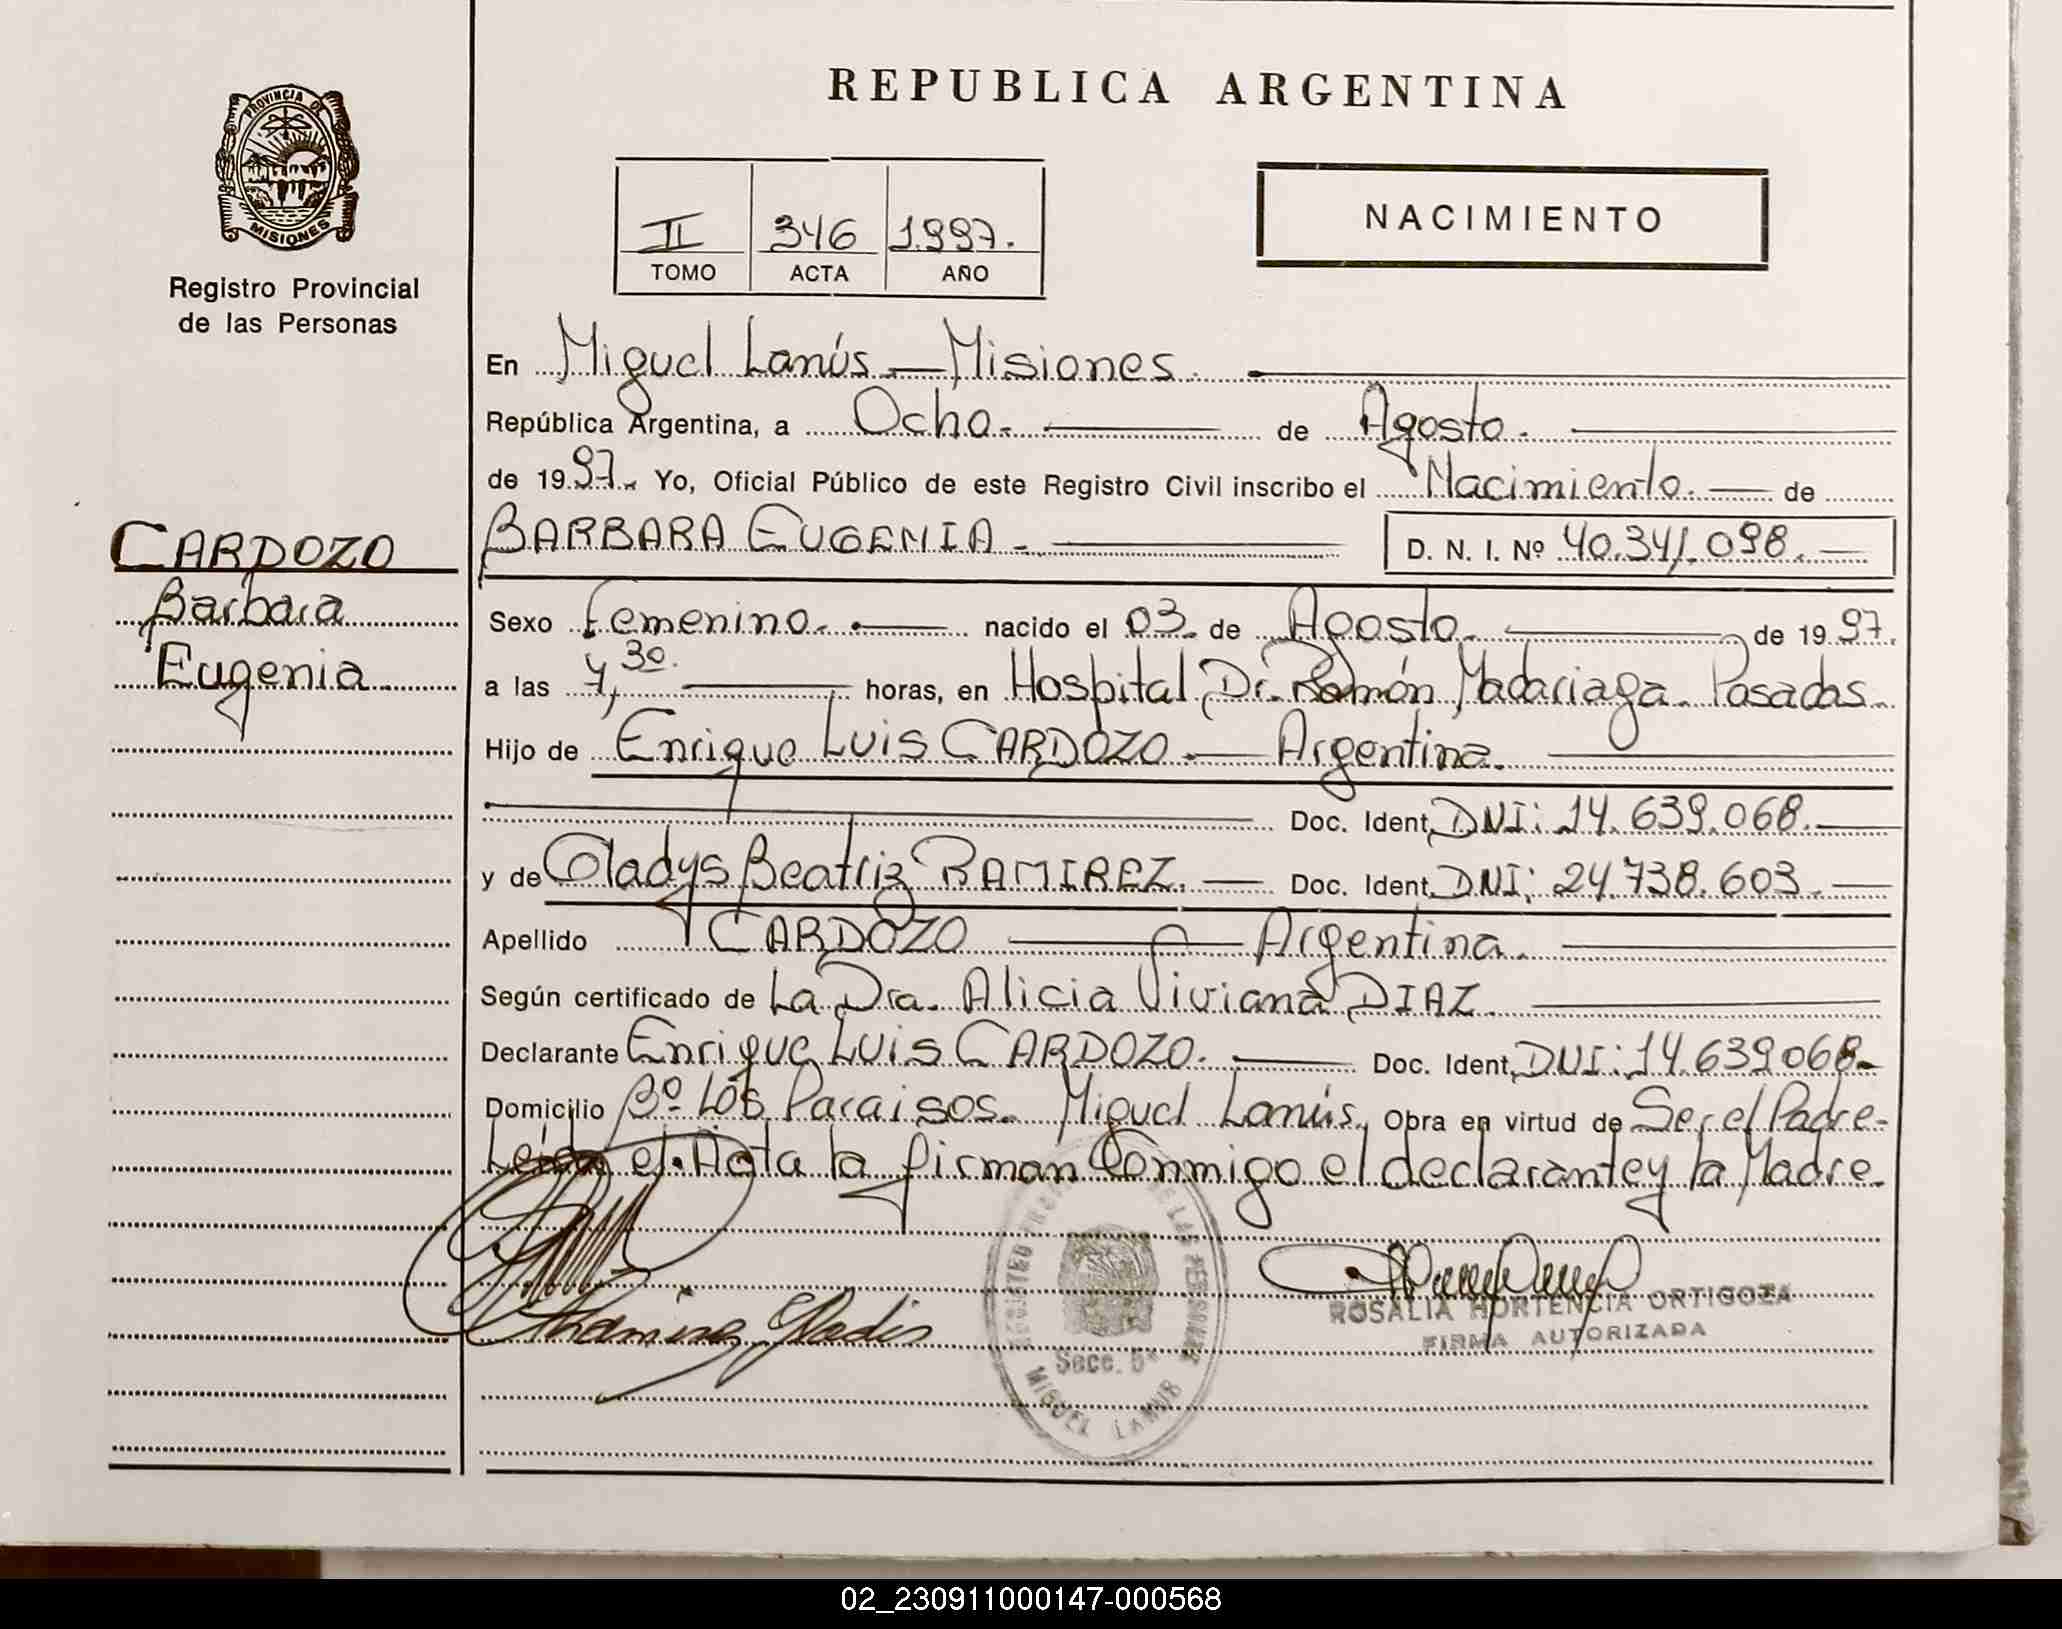 PROVINCIA D
MISIONES
Registro Provincial
de las Personas
CARDOZO
Barbara
Eugenia
REPUBLICA ARGENTINA
II 346 1.997.
TOMO ACTA AÑO
NACIMIENTO
En Miguel Lanús — Misiones.
República Argentina, a Ocho. de Agosto.
de 1997. Yo, Oficial Público de este Registro Civil inscribo el Nacimiento. de
BARBARA EUGENIA. D. N. I. Nº 40.341.098.
Sexo Femenino. nacido el 03. de Agosto. de 1997.
a las 4,30. horas, en Hospital Dr. Ramón Madariaga. Posadas.
Hijo de Enrique Luis CARDOZO. — Argentina.
Doc. Ident. DNI: 14.639.068.
y de Gladys Beatriz RAMIREZ. Doc. Ident. DNI: 24.738.603.
Apellido CARDOZO — Argentina.
Según certificado de La Dra. Alicia Viviana DIAZ.
Declarante Enrique Luis CARDOZO. Doc. Ident. DNI: 14.639.068.
Domicilio Bº Los Paraisos. Miguel Lanús. Obra en virtud de Ser el Padre.
Leída el Acta la firman Conmigo el declarante y la Madre.
ROSALIA HORTENCIA ORTIGOZA
FIRMA AUTORIZADA
DE LAS PERSONAS
Secc. 5ª
MIGUEL LANUS
02_230911000147-000568